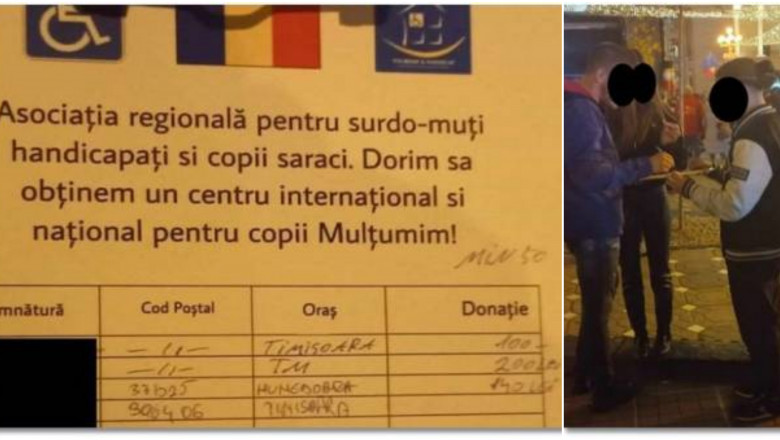 Asociația regională pentru surdo-muți
handicapați si copii saraci. Dorim sa
obținem un centru internațional si
național pentru copii Mulțumim!
MIN 50
mnătură Cod Poștal Oraș Donație
—,,— TIMIȘOARA 100-
—,,— TM 200 LEI
HUNEDOARA 140 LEI